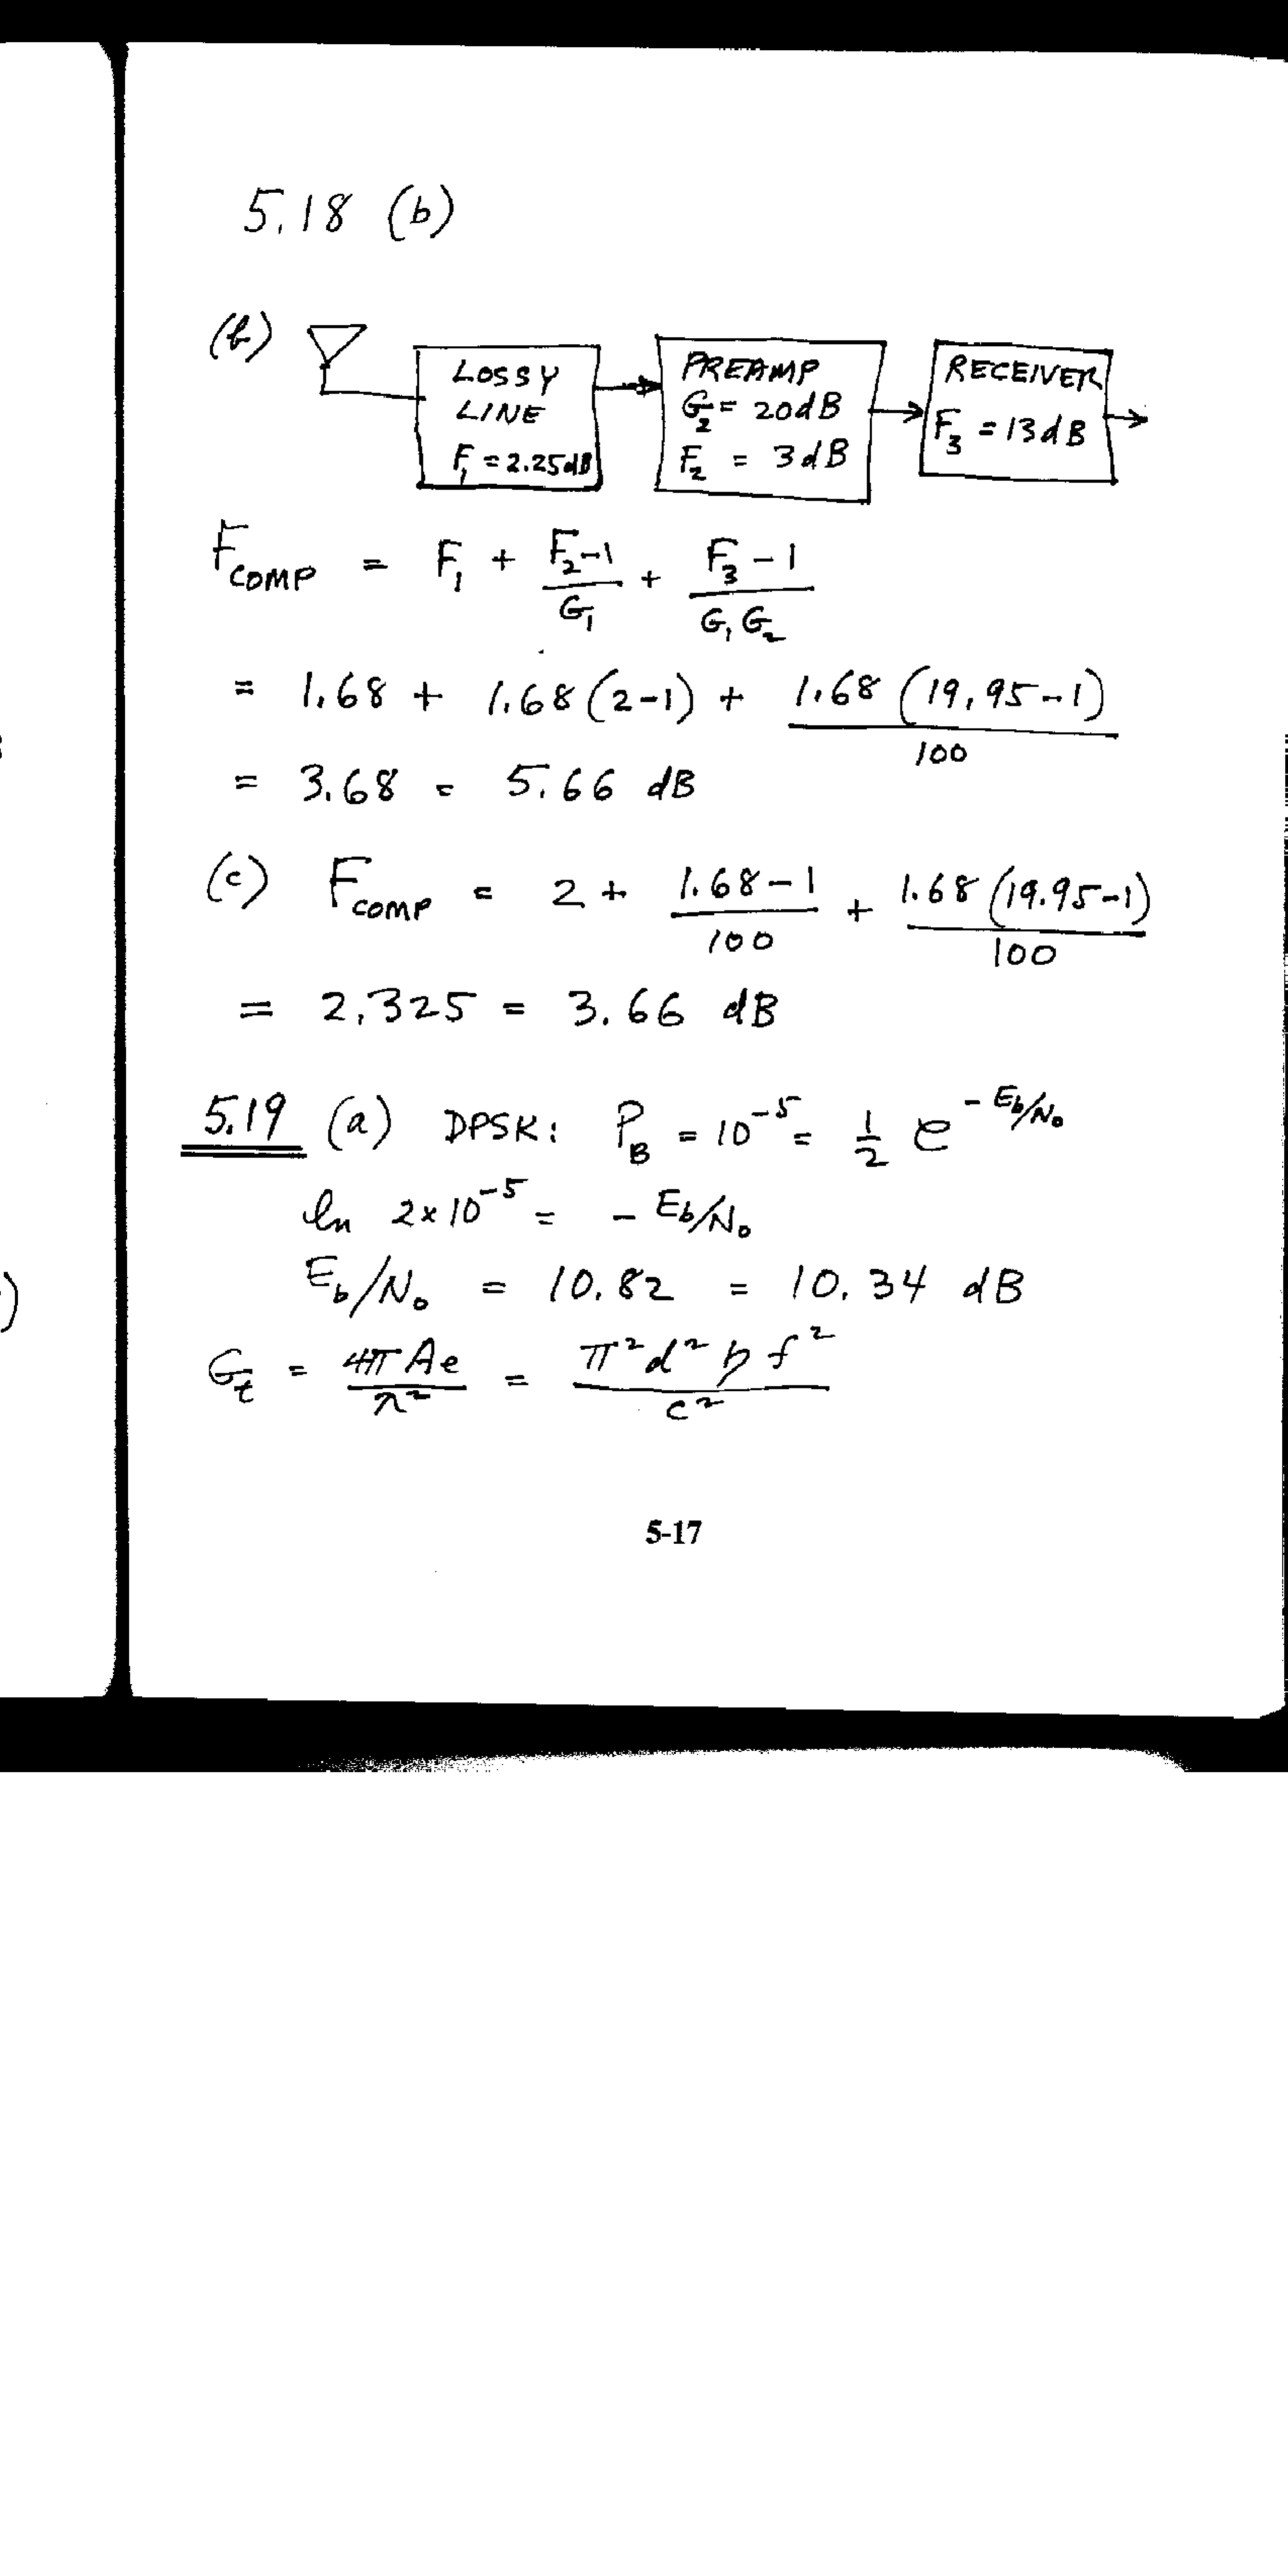 5.18 (b)
(b)
LOSSY
LINE
F₁ = 2.25dB
PREAMP
G₂ = 20dB
F₂ = 3dB
RECEIVER
F₃ = 13dB
F_COMP = F₁ + (F₂-1)/G₁ + (F₃-1)/(G₁G₂)
= 1.68 + 1.68(2-1) + 1.68(19.95-1)/100
= 3.68 = 5.66 dB
(c) F_COMP = 2 + (1.68-1)/100 + 1.68(19.95-1)/100
= 2.325 = 3.66 dB
5.19 (a) DPSK: P_B = 10⁻⁵ = 1/2 e^(-Eb/N₀)
ln 2×10⁻⁵ = - Eb/N₀
Eb/N₀ = 10.82 = 10.34 dB
G_t = 4πAe/λ² = π²d²ηf²/c²
5-17